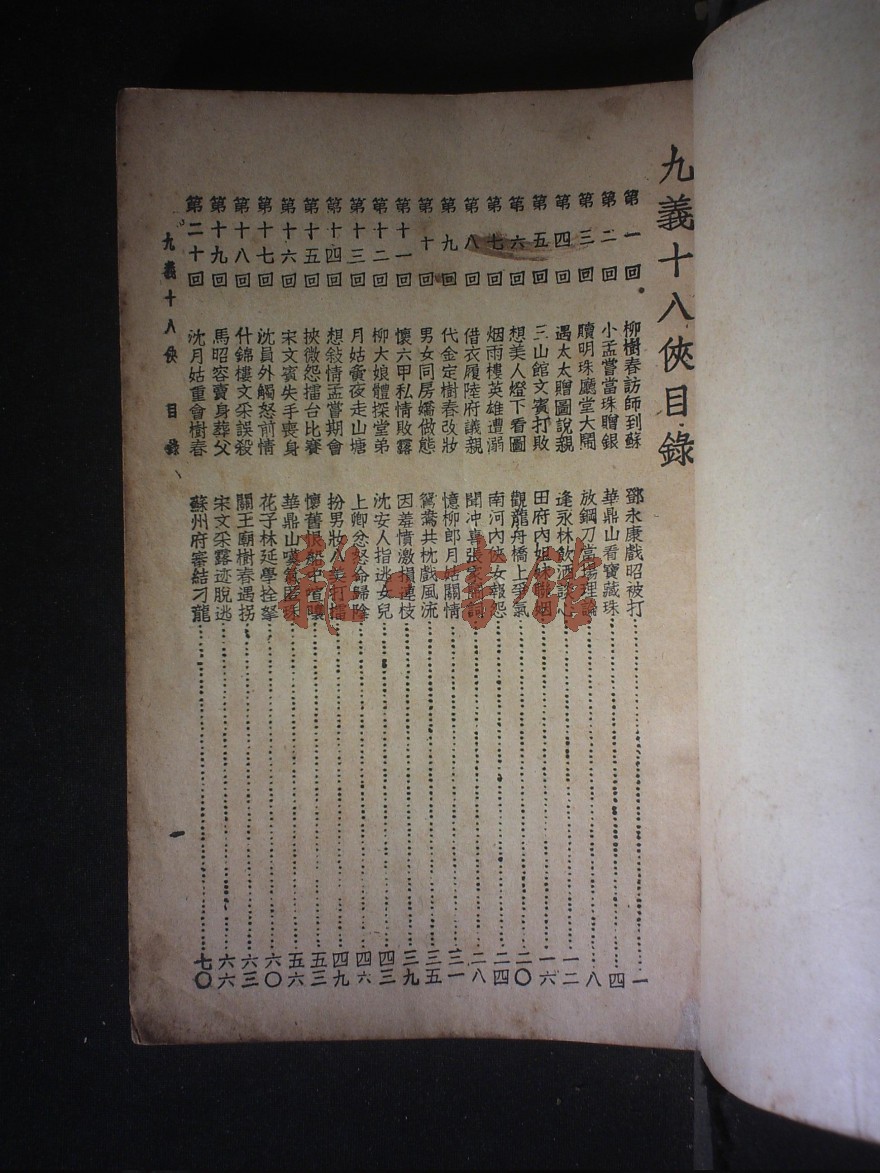 九義十八俠目錄
第一回 柳樹春訪師到蘇 鄧永康戲昭被打 一
第二回 小孟嘗當珠贈銀 華鼎山看寶藏珠 四
第三回 贖明珠廳堂大鬧 放鋼刀當場理論 八
第四回 遇太太贈圖說親 逢永林飲酒談心 一二
第五回 三山館文賓打敗 田府內姐妹聯姻 一六
第六回 想美人燈下看圖 觀龍舟橋上爭氣 二〇
第七回 烟雨樓英雄遭溺 南河內俠女報怨 二四
第八回 借衣履陸府議親 聞冲喜張家 二八
第九回 代金定樹春改妝 憶柳郎月姑關情 三一
第十回 男女同房嬌做態 鴛鴦共枕戲風流 三五
第十一回 懷六甲私情敗露 因羞憤激損連枝 三九
第十二回 柳大娘體探堂弟 沈安人指逃女兒 四三
第十三回 月姑黃夜走山塘 上卿忿怒命歸陰 四六
第十四回 想敍情孟嘗期會 扮男妝八美打擂 四九
第十五回 挾微怨擂台比賽 懷舊恨船中喧嚷 五三
第十六回 宋文賓失手喪身 華鼎山嘆氣匿珠 五六
第十七回 沈員外觸怒前情 花子林延學拴拏 六〇
第十八回 什錦樓文采誤殺 關王廟樹春遇拐 六三
第十九回 馬昭容賣身葬父 宋文采露迹脫逃 六六
第二十回 沈月姑重會樹春 蘇州府審結刁龍 七〇
九義十八俠 目錄 一